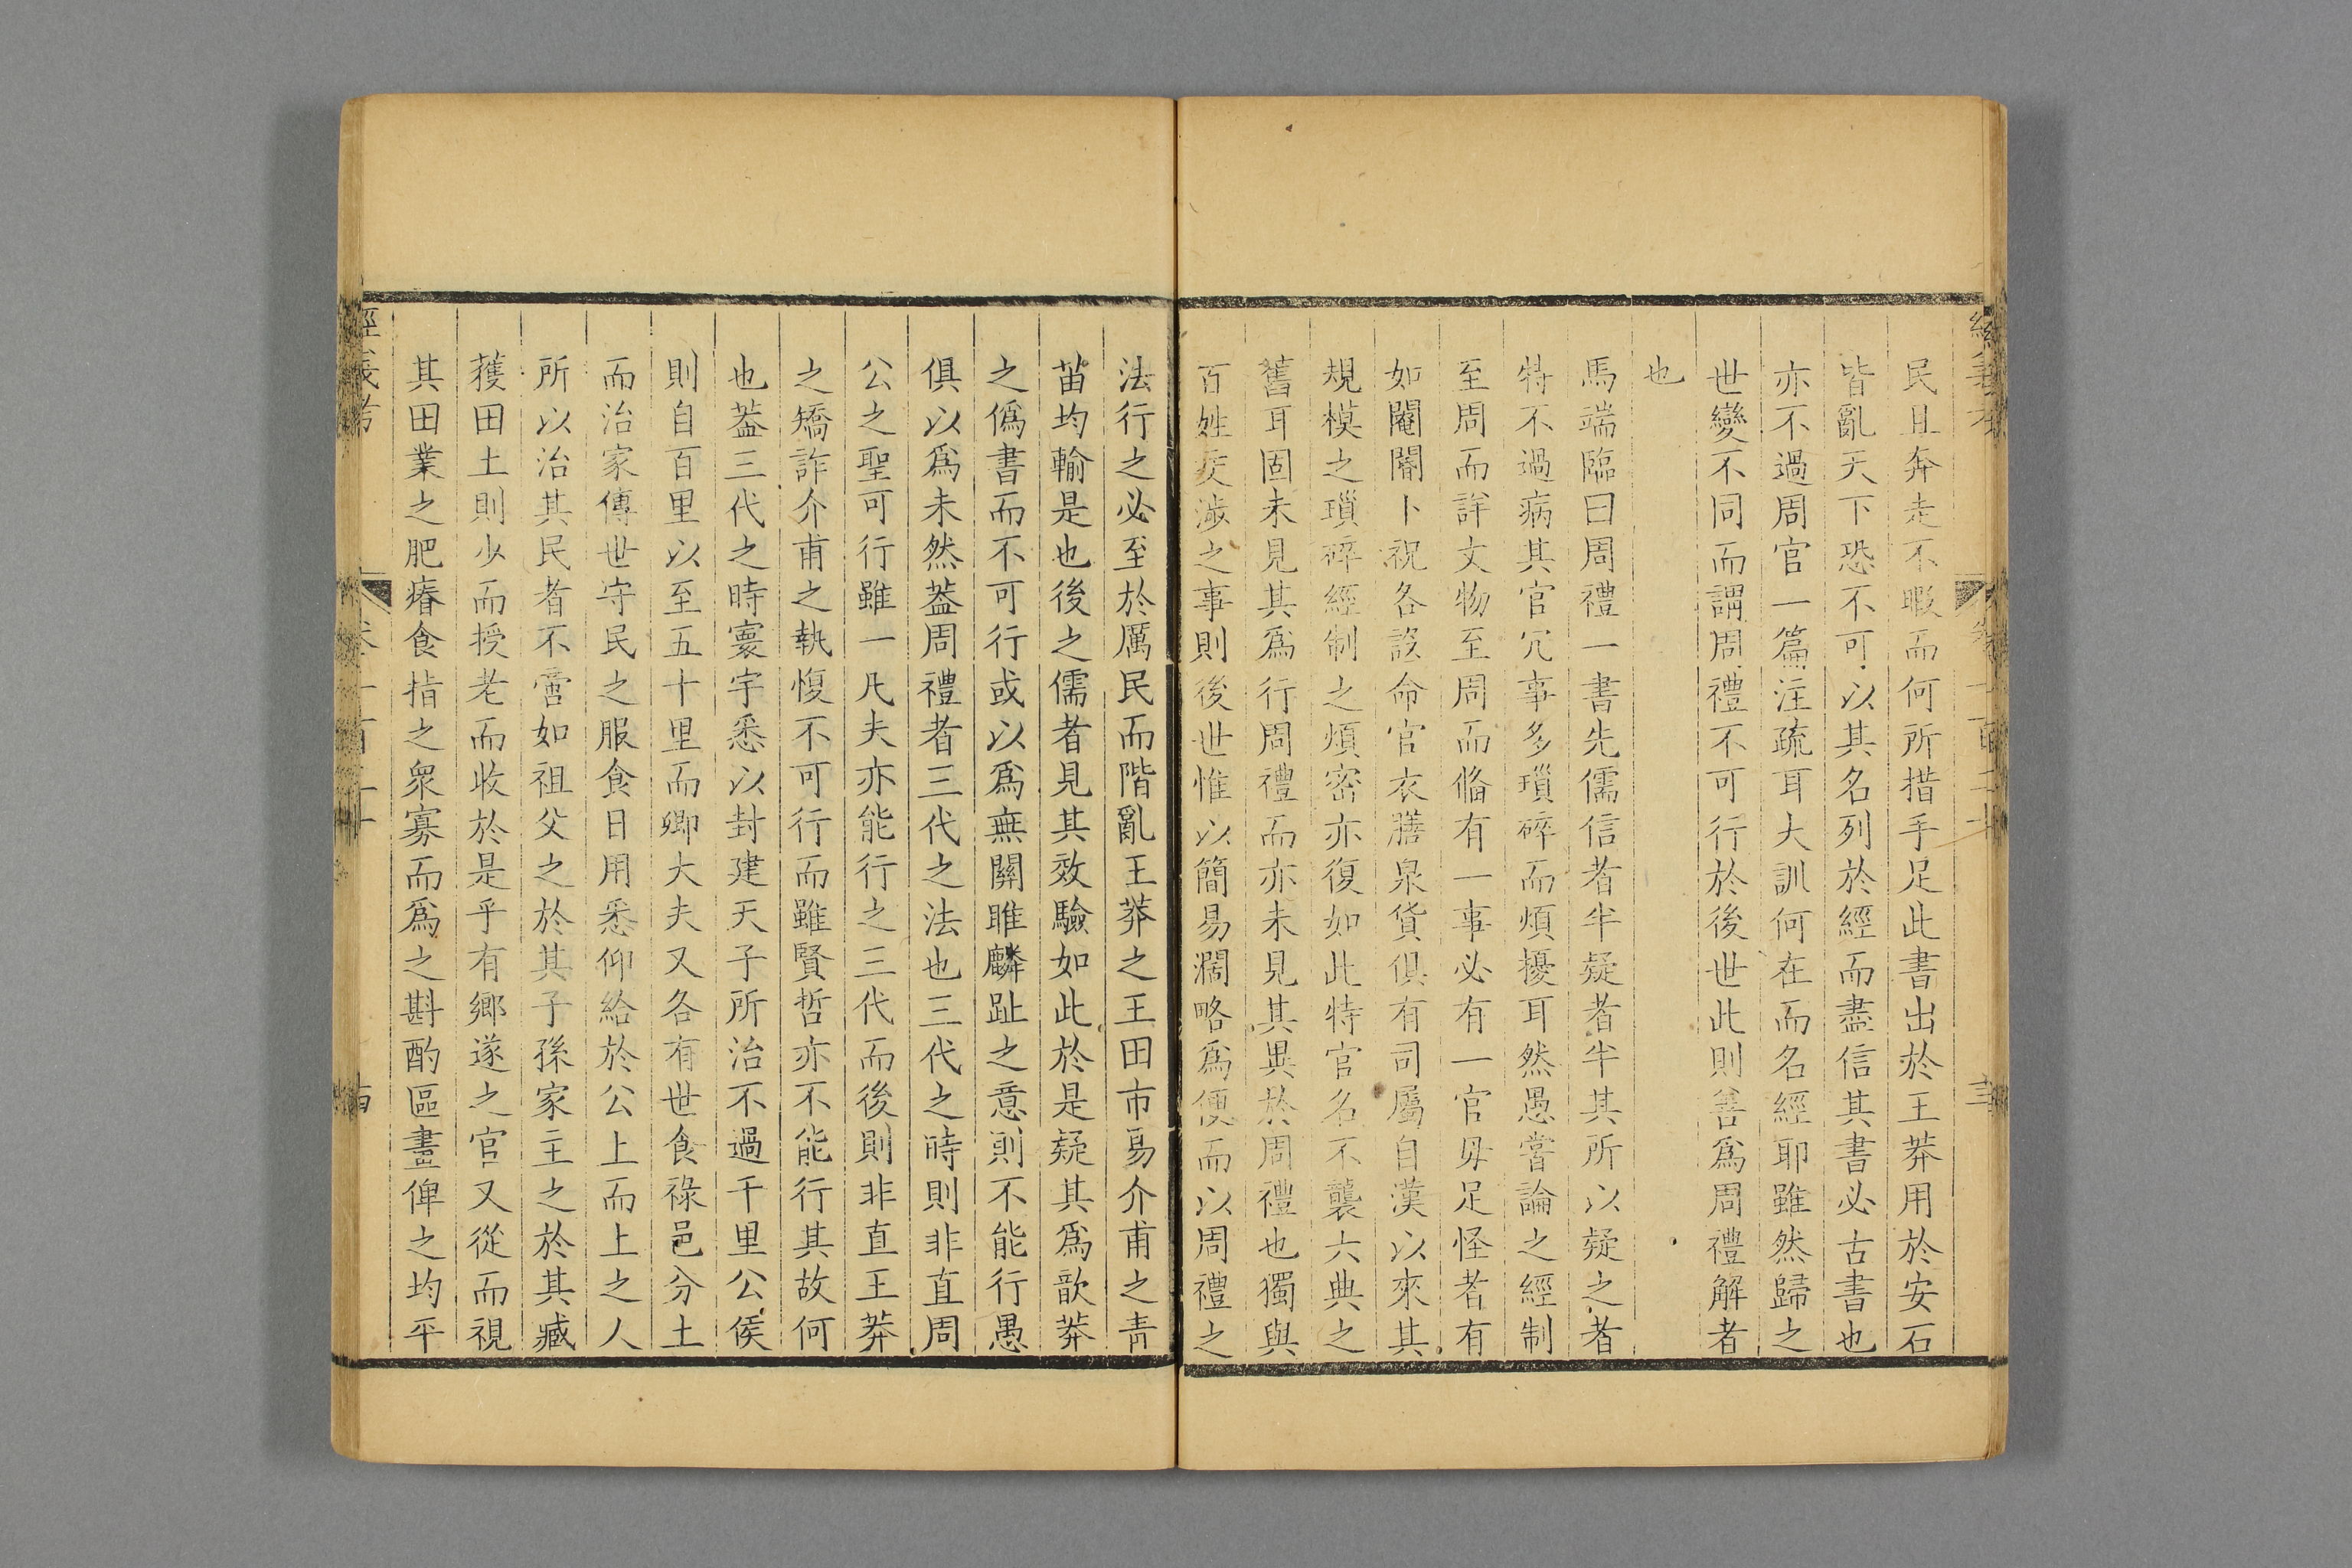 民且奔走不暇而何所措手足此書出於王莽用於安石
皆亂天下恐不可以其名列於經而盡信其書必古書也
亦不過周官一篇注疏耳大訓何在而名經耶雖然歸之
世變不同而謂周禮不可行於後世此則善爲周禮解者
也
馬端臨曰周禮一書先儒信者半疑者半其所以疑之者
特不過病其官冗事多瑣碎而煩擾耳然愚嘗論之經制
至周而詳文物至周而僃有一事必有一官毋足怪者有
如閹閽卜祝各設命官衣膳泉貨俱有司屬自漢以來其
規模之瑣碎經制之煩密亦復如此特官名不襲六典之
舊耳固未見其爲行周禮而亦未見其異於周禮也獨與
百姓交涉之事則後世惟以簡易濶略爲便而以周禮之
法行之必至於厲民而階亂王莽之王田市易介甫之青
苖均輸是也後之儒者見其效驗如此於是疑其爲歆莽
之僞書而不可行或以爲無關雎麟趾之意則不能行愚
俱以爲未然葢周禮者三代之法也三代之時則非直周
公之聖可行雖一凡夫亦能行之三代而後則非直王莽
之矯詐介甫之執愎不可行而雖賢哲亦不能行其故何
也葢三代之時寰宇悉以封建天子所治不過千里公侯
則自百里以至五十里而卿大夫又各有世食祿邑分土
而治家傳世守民之服食日用悉仰給於公上而上之人
所以治其民者不啻如祖父之於其子孫家主之於其臧
獲田土則少而授老而收於是乎有鄉遂之官又從而視
其田業之肥瘠食指之衆寡而爲之斟酌區畫俾之均平